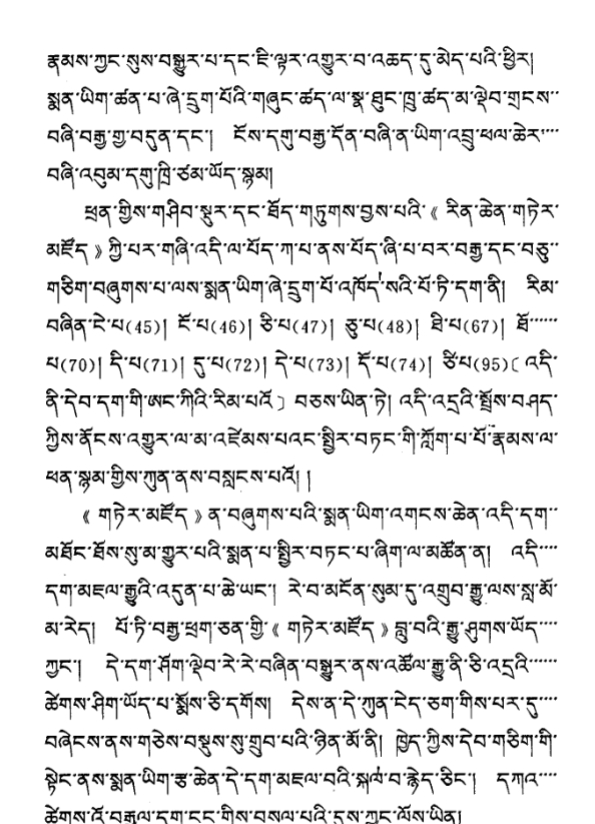 རྣམས་ཀྱང་སུས་བསྒྱུར་པ་དང་ཇི་ལྟར་འགྱུར་བ་འཆད་དུ་མེད་པའི་ཕྱིར།
སྨན་ཡིག་ཚན་པ་ཞེ་དྲུག་པོའི་གཞུང་ཚད་ལ་སྣ་ཐུང་ཁྲུ་ཚད་མ་ལྡེབ་གྲངས་
བཞི་བརྒྱ་གྱ་བདུན་དང་། ངོས་དགུ་བརྒྱ་དོན་བཞི་ན་ཡིག་འབྲུ་ཕལ་ཆེར་
བཞི་འབུམ་དགུ་ཁྲི་ཙམ་ཡོད་སྙམ།
ཕྲན་གྱིས་གཤིབ་སྡུར་དང་ཐོད་གཏུགས་བྱས་པའི་《 རིན་ཆེན་གཏེར་
མཛོད 》ཀྱི་པར་གཞི་འདི་ལ་པོད་ཀ་པ་ནས་པོད་ཞི་པ་བར་བརྒྱ་དང་བཅུ་
གཅིག་བཞུགས་པ་ལས་སྨན་ཡིག་ཞེ་དྲུག་པོ་འཁོད་སའི་པོ་ཏི་དག་ནི། རིམ་
བཞིན་ངེ་པ(45)། ངོ་པ(46)། ཅི་པ(47)། ཅུ་པ(48)། ཐི་པ(67)། ཐོ་
པ(70)། དི་པ(71)། དུ་པ(72)། དེ་པ(73)། དོ་པ(74)། ཙི་པ(95)〔 འདི་
ནི་དེབ་དག་གི་ཨང་ཀིའི་རིམ་པའོ 〕 བཅས་ཡིན་ཏེ། འདི་འདྲའི་སྤྲོས་བཤད་
ཀྱིས་ནོངས་འགྱུར་ལ་མ་འཛེམས་པའང་སྤྱིར་བཏང་གི་ཀློག་པ་པོ་རྣམས་ལ་
ཕན་སྙམ་གྱིས་ཀུན་ནས་བསླངས་པའོ། །
《 གཏེར་མཛོད 》ན་བཞུགས་པའི་སྨན་ཡིག་འགངས་ཆེན་འདི་དག་
མཐོང་ཐོས་སུ་མ་གྱུར་པའི་སྨན་པ་སྤྱིར་བཏང་པ་ཞིག་ལ་མཚོན་ན། འདི་
དག་མཇལ་རྒྱུའི་འདུན་པ་ཆེ་ཡང་། རེ་བ་མངོན་སུམ་དུ་འགྲུབ་རྒྱུ་ལས་སླ་མོ་
མ་རེད། པོ་ཏི་བརྒྱ་ཕྲག་ཅན་གྱི་《 གཏེར་མཛོད 》བླུ་བའི་རྒྱུ་ཤུགས་ཡོད་
ཀྱང་། དེ་དག་ཤོག་ལྡེབ་རེ་རེ་བཞིན་བསྒྱུར་ནས་འཚོལ་རྒྱུ་ནི་ཅི་འདྲའི་
ཚེགས་ཤིག་ཡོད་པ་སྨོས་ཅི་དགོས། དེས་ན་དེ་ཀུན་ངེད་ཅག་གིས་པར་དུ་
བཞེངས་ནས་གཅེས་བསྡུས་སུ་གྲུབ་པའི་ཉིན་མོ་ནི། ཁྱེད་ཀྱིས་དེབ་གཅིག་གི་
སྟེང་ནས་སྨན་ཡིག་རྩ་ཆེན་དེ་དག་མཇལ་བའི་སྐལ་བ་རྙེད་ཅིང་། དཀའ་
ཚེགས་འོ་བརྒྱལ་དག་ངང་གིས་བསལ་པའི་དུས་ཀྱང་ལོས་ཡིན།